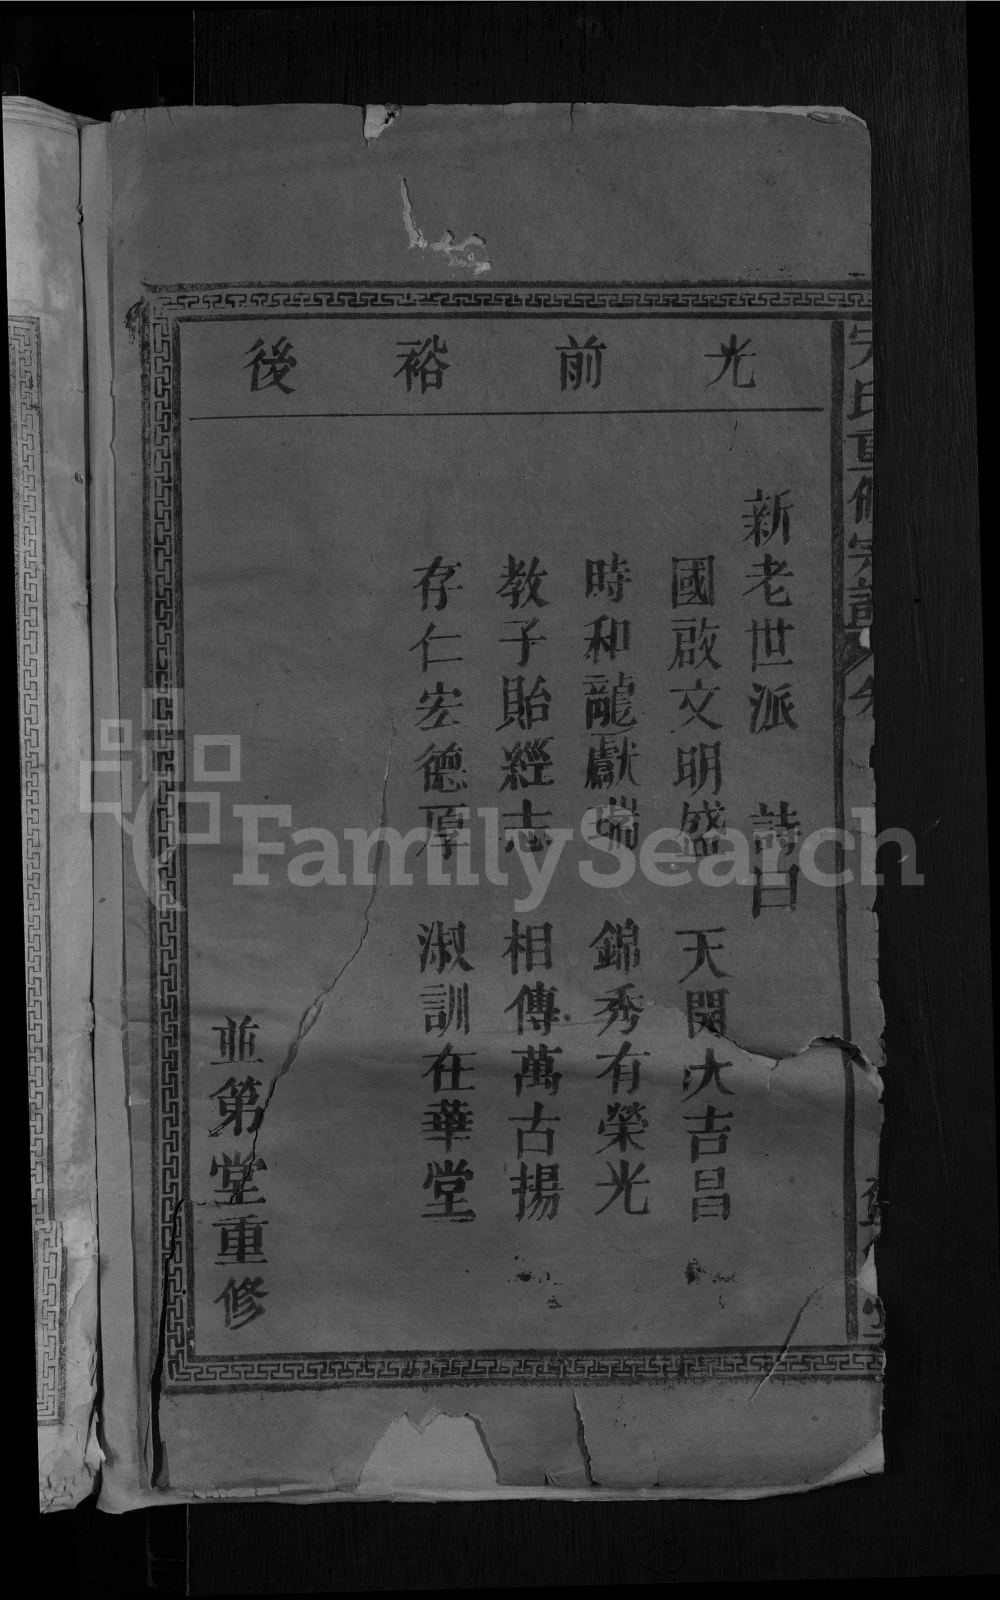 光前裕後
新老世派 詩曰
國啟文明盛 天開大吉昌
時和龍獻瑞 錦秀有榮光
教子貽經志 相傳萬古揚
存仁宏德厚 淑訓在華堂
並第堂重修
氏重修宗譜
FamilySearch